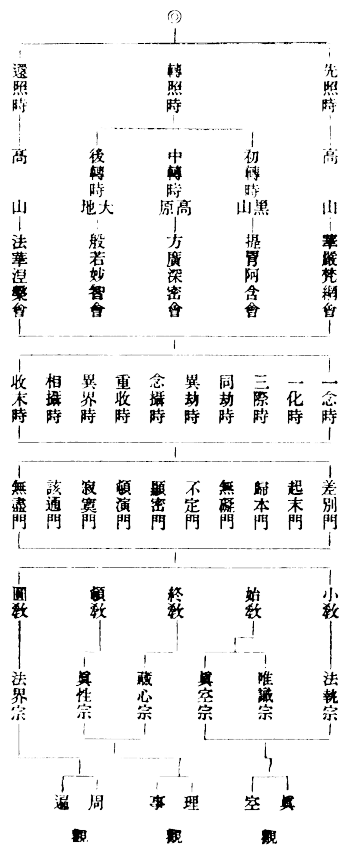 ◎
先照時
高山
華嚴梵網會
轉照時
初轉時
黑山
提胃阿含會
中轉時
高原
方廣深密會
後轉時
大地
般若妙智會
還照時
高山
法華涅槃會
一念時
一化時
三際時
同劫時
異劫時
念攝時
重收時
異界時
相攝時
收末時
差別門
起末門
歸本門
無礙門
不定門
顯密門
頓演門
寂寞門
該通門
無盡門
小敎
始敎
終敎
頓敎
圓敎
法執宗
唯識宗
眞空宗
藏心宗
眞性宗
法界宗
眞空觀
理事觀
周遍觀